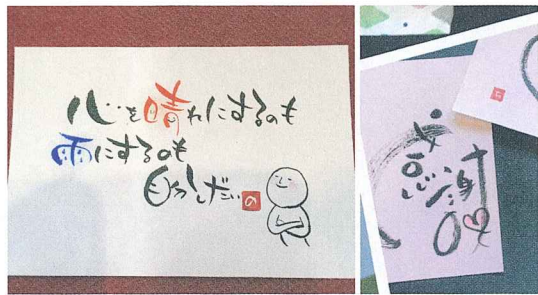 心を晴れにするのも
雨にするのも
自分しだい
の
感謝